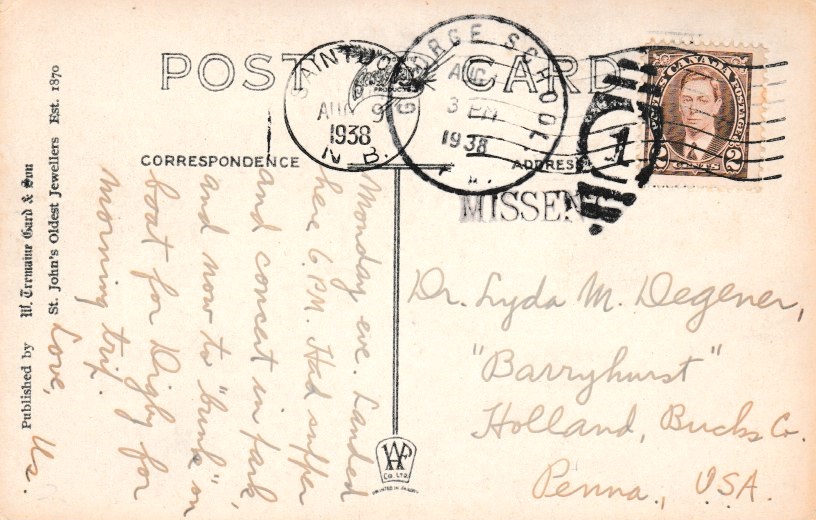 POST CARD
SAINT JOHN
AUG 9
1938
N.B.
PRODUCTS
GEORGE SCHOOL
AUG
3 PM
1938
1
CANADA POSTAGE
2 CENTS 2
CORRESPONDENCE
ADDRESS
MISSENT
Monday eve. Landed
here 6 P.M. Had supper
and concert in park,
and now to "bunk" on
boat for Digby for
morning trip.
Love,
Us.
Dr. Lyda M. Degener,
"Barryhurst"
Holland, Bucks Co.
Penna., USA.
Published by W. Tremaine Gard & Son
St. John's Oldest Jewellers Est. 1870
CO. LTD.